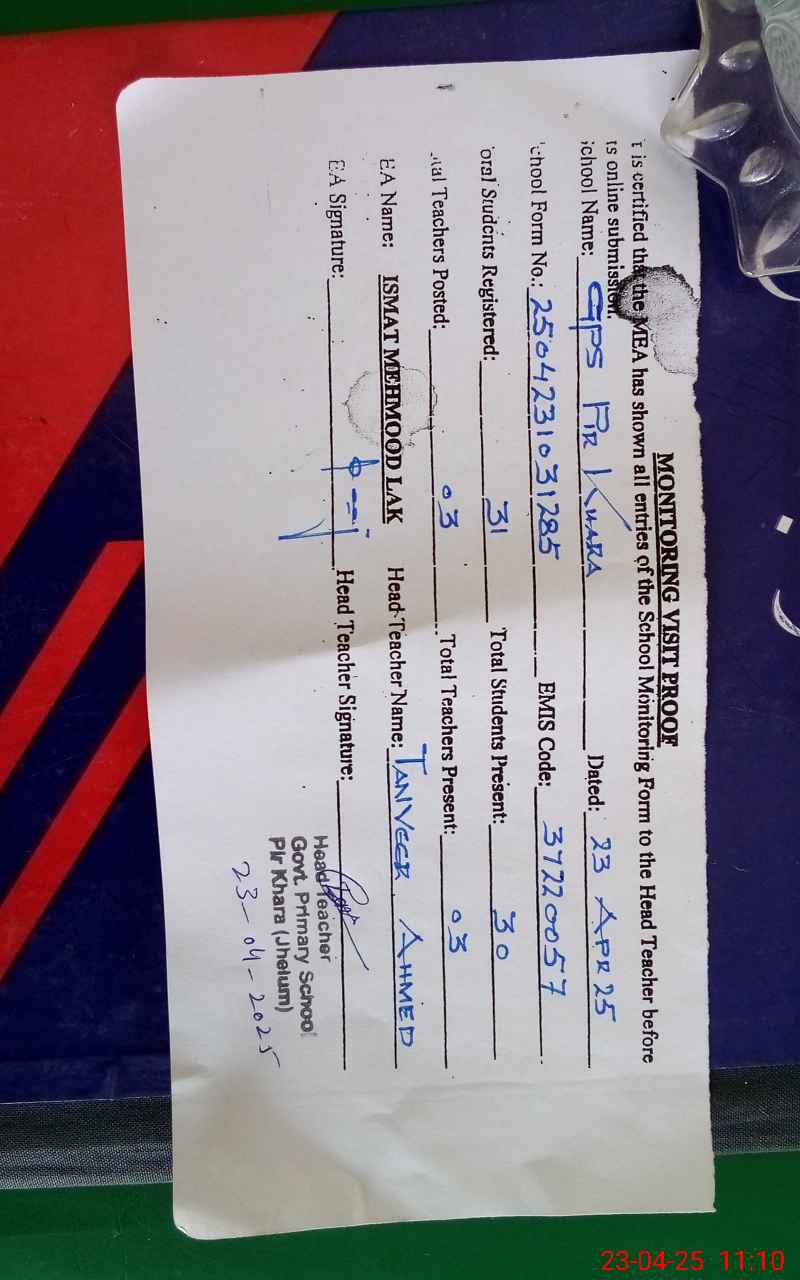 MONITORING VISIT PROOF
t is certified that the MEA has shown all entries of the School Monitoring Form to the Head Teacher before
ts online submission.
chool Name: GPS PIR KHARA Dated: 23 APR 25
chool Form No.: 2504231031285 EMIS Code: 37220057
otal Students Registered: 31 Total Students Present: 30
tal Teachers Posted: 03 Total Teachers Present: 03
EA Name: ISMAT MEHMOOD LAK Head Teacher Name: TANVEER AHMED
EA Signature: Head Teacher Signature:
Head Teacher
Govt. Primary School
Pir Khara (Jhelum)
23-04-2025
23-04-25 11:10